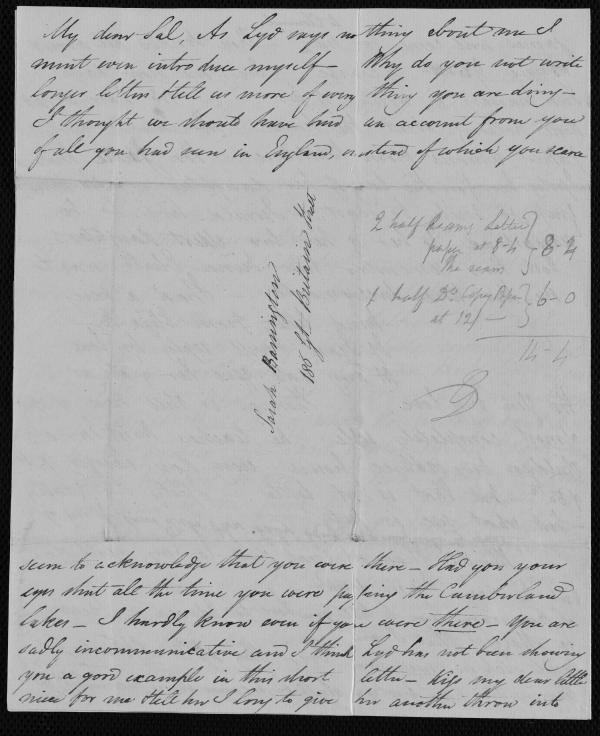 My dear Sal, As Lyd says nothing about me I
must even introduce myself – Why do you not write
longer letters & tell us more of every thing you are doing –
I thought we should have had an account from you
of all you had seen in England, instead of which you scarce
Sarah Barrington
188 Gt Britain Street
2 half Reams Letter
paper at 8-4 } 8-4
the ream
1 half Do Copy Paper } 6-0
at 12/-
14-4
seem to acknowledge that you were there – Had you your
eyes shut all the time you were passing the Cumberland
lakes – I hardly know even if you were there – You are
sadly incommunicative and I think Lyd has not been showing
you a good example in this short letter – Kiss my dear little
niece for me & tell her I long to give her another throw into